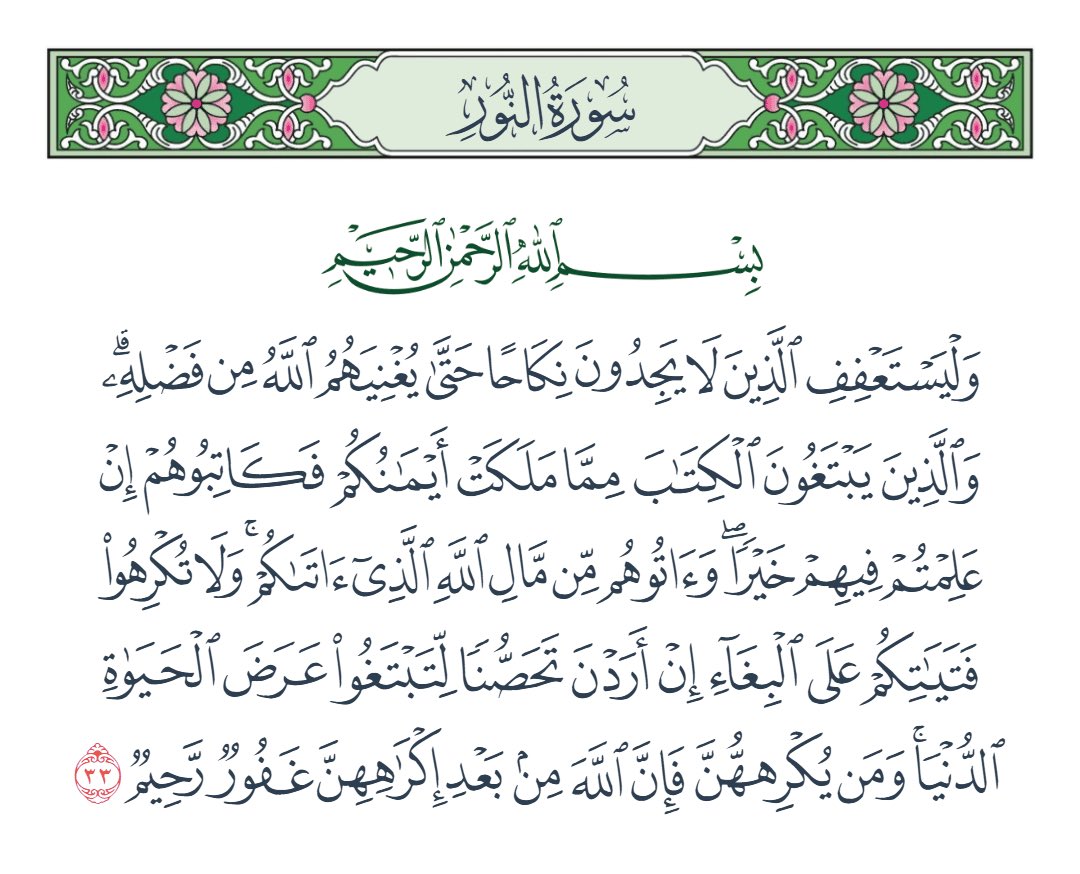 سُورَةُ النُّورِ
بِسْمِ ٱللَّهِ ٱلرَّحْمَٰنِ ٱلرَّحِيمِ
وَلْيَسْتَعْفِفِ ٱلَّذِينَ لَا يَجِدُونَ نِكَاحًا حَتَّىٰ يُغْنِيَهُمُ ٱللَّهُ مِن فَضْلِهِۦۗ
وَٱلَّذِينَ يَبْتَغُونَ ٱلْكِتَٰبَ مِمَّا مَلَكَتْ أَيْمَٰنُكُمْ فَكَاتِبُوهُمْ إِنْ
عَلِمْتُمْ فِيهِمْ خَيْرًاۖ وَءَاتُوهُم مِّن مَّالِ ٱللَّهِ ٱلَّذِىٓ ءَاتَىٰكُمْۚ وَلَا تُكْرِهُوا۟
فَتَيَٰتِكُمْ عَلَى ٱلْبِغَآءِ إِنْ أَرَدْنَ تَحَصُّنًا لِّتَبْتَغُوا۟ عَرَضَ ٱلْحَيَوٰةِ
ٱلدُّنْيَاۚ وَمَن يُكْرِههُّنَّ فَإِنَّ ٱللَّهَ مِنۢ بَعْدِ إِكْرَٰهِهِنَّ غَفُورٌ رَّحِيمٌ ٣٣